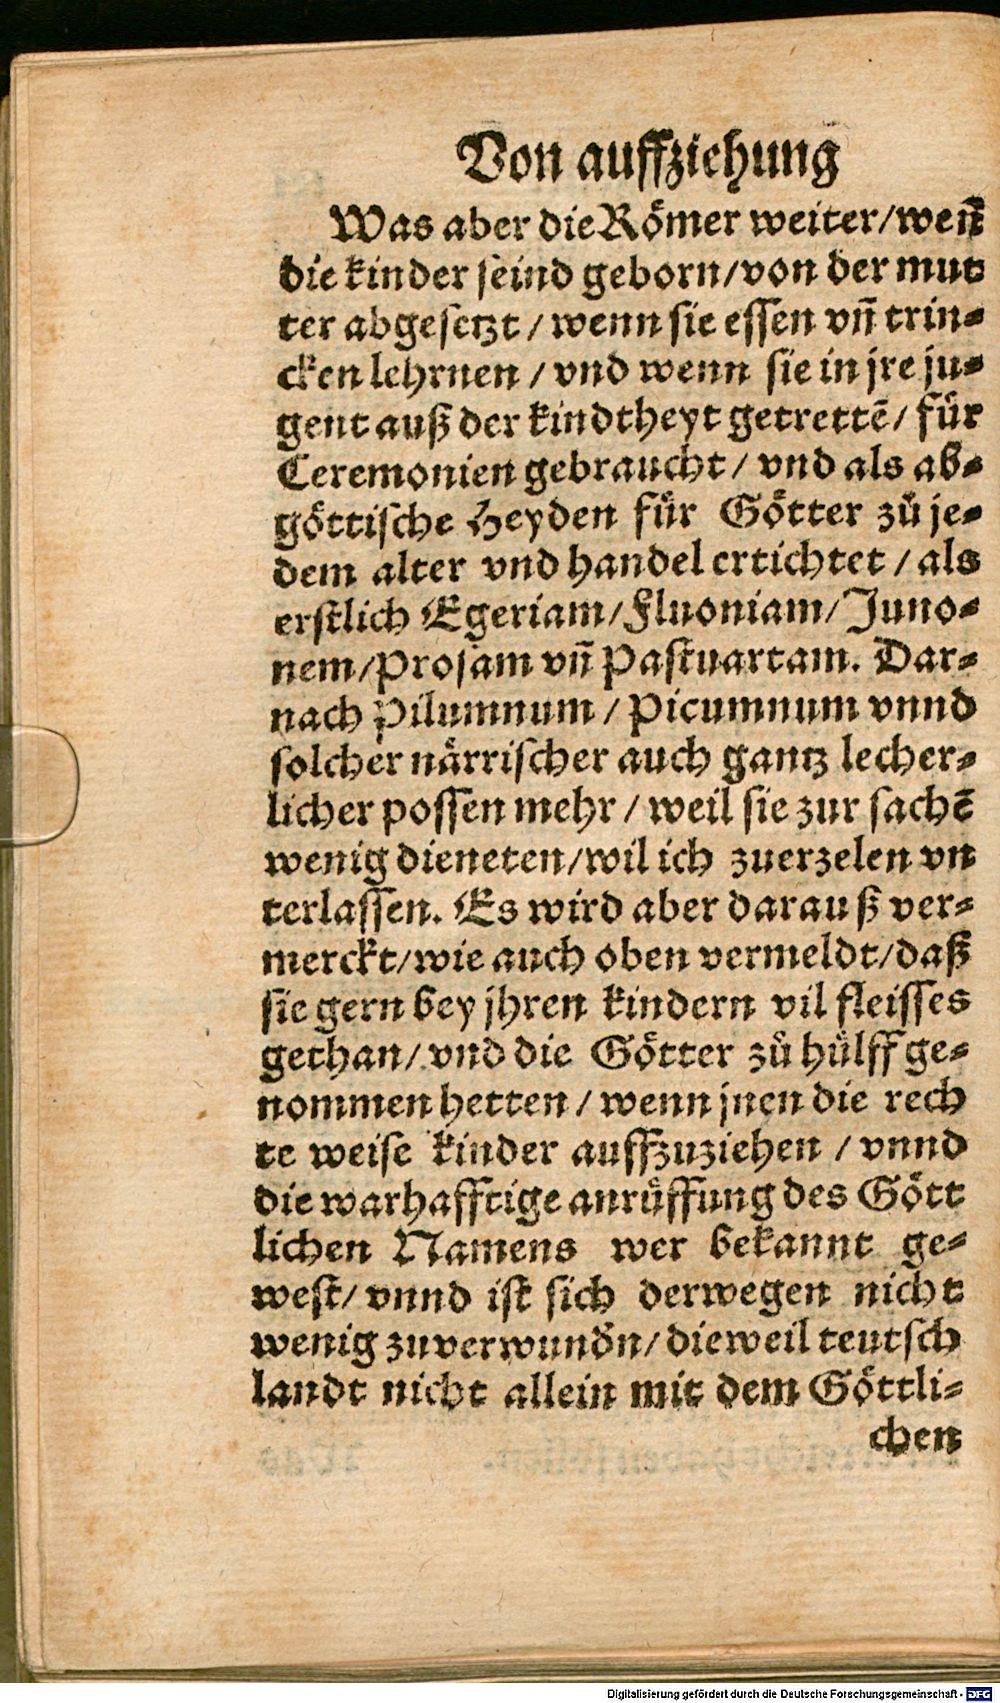 Von auffziehung
Was aber die Römer weiter/weñ
die kinder seind geborn/von der mut
ter abgesetzt / wenn sie essen vñ trin⸗
cken lehrnen / vnd wenn sie in jre ju⸗
gent auß der kindtheyt getrettē/ für
Ceremonien gebraucht / vnd als ab⸗
göttische Heyden für Götter zů je⸗
dem alter vnd handel ertichtet / als
erstlich Egeriam/Fluoniam/Juno⸗
nem/Prosam vñ Pastuartam. Dar⸗
nach Pilumnum / Picumnum vnnd
solcher närrischer auch gantz lecher⸗
licher possen mehr / weil sie zur sachē
wenig dieneten/wil ich zuerzelen vn
terlassen. Es wird aber darauß ver⸗
merckt/wie auch oben vermeldt/daß
sie gern bey jhren kindern vil fleisses
gethan/ vnd die Götter zů hülff ge⸗
nommen hetten / wenn jnen die rech
te weise kinder auffzuziehen / vnnd
die warhafftige anrüffung des Gött
lichen Namens wer bekannt ge⸗
west/ vnnd ist sich derwegen nicht
wenig zuverwundn̄/dieweil teutsch
landt nicht allein mit dem Göttli⸗
chen
Digitalisierung gefördert durch die Deutsche Forschungsgemeinschaft - DFG